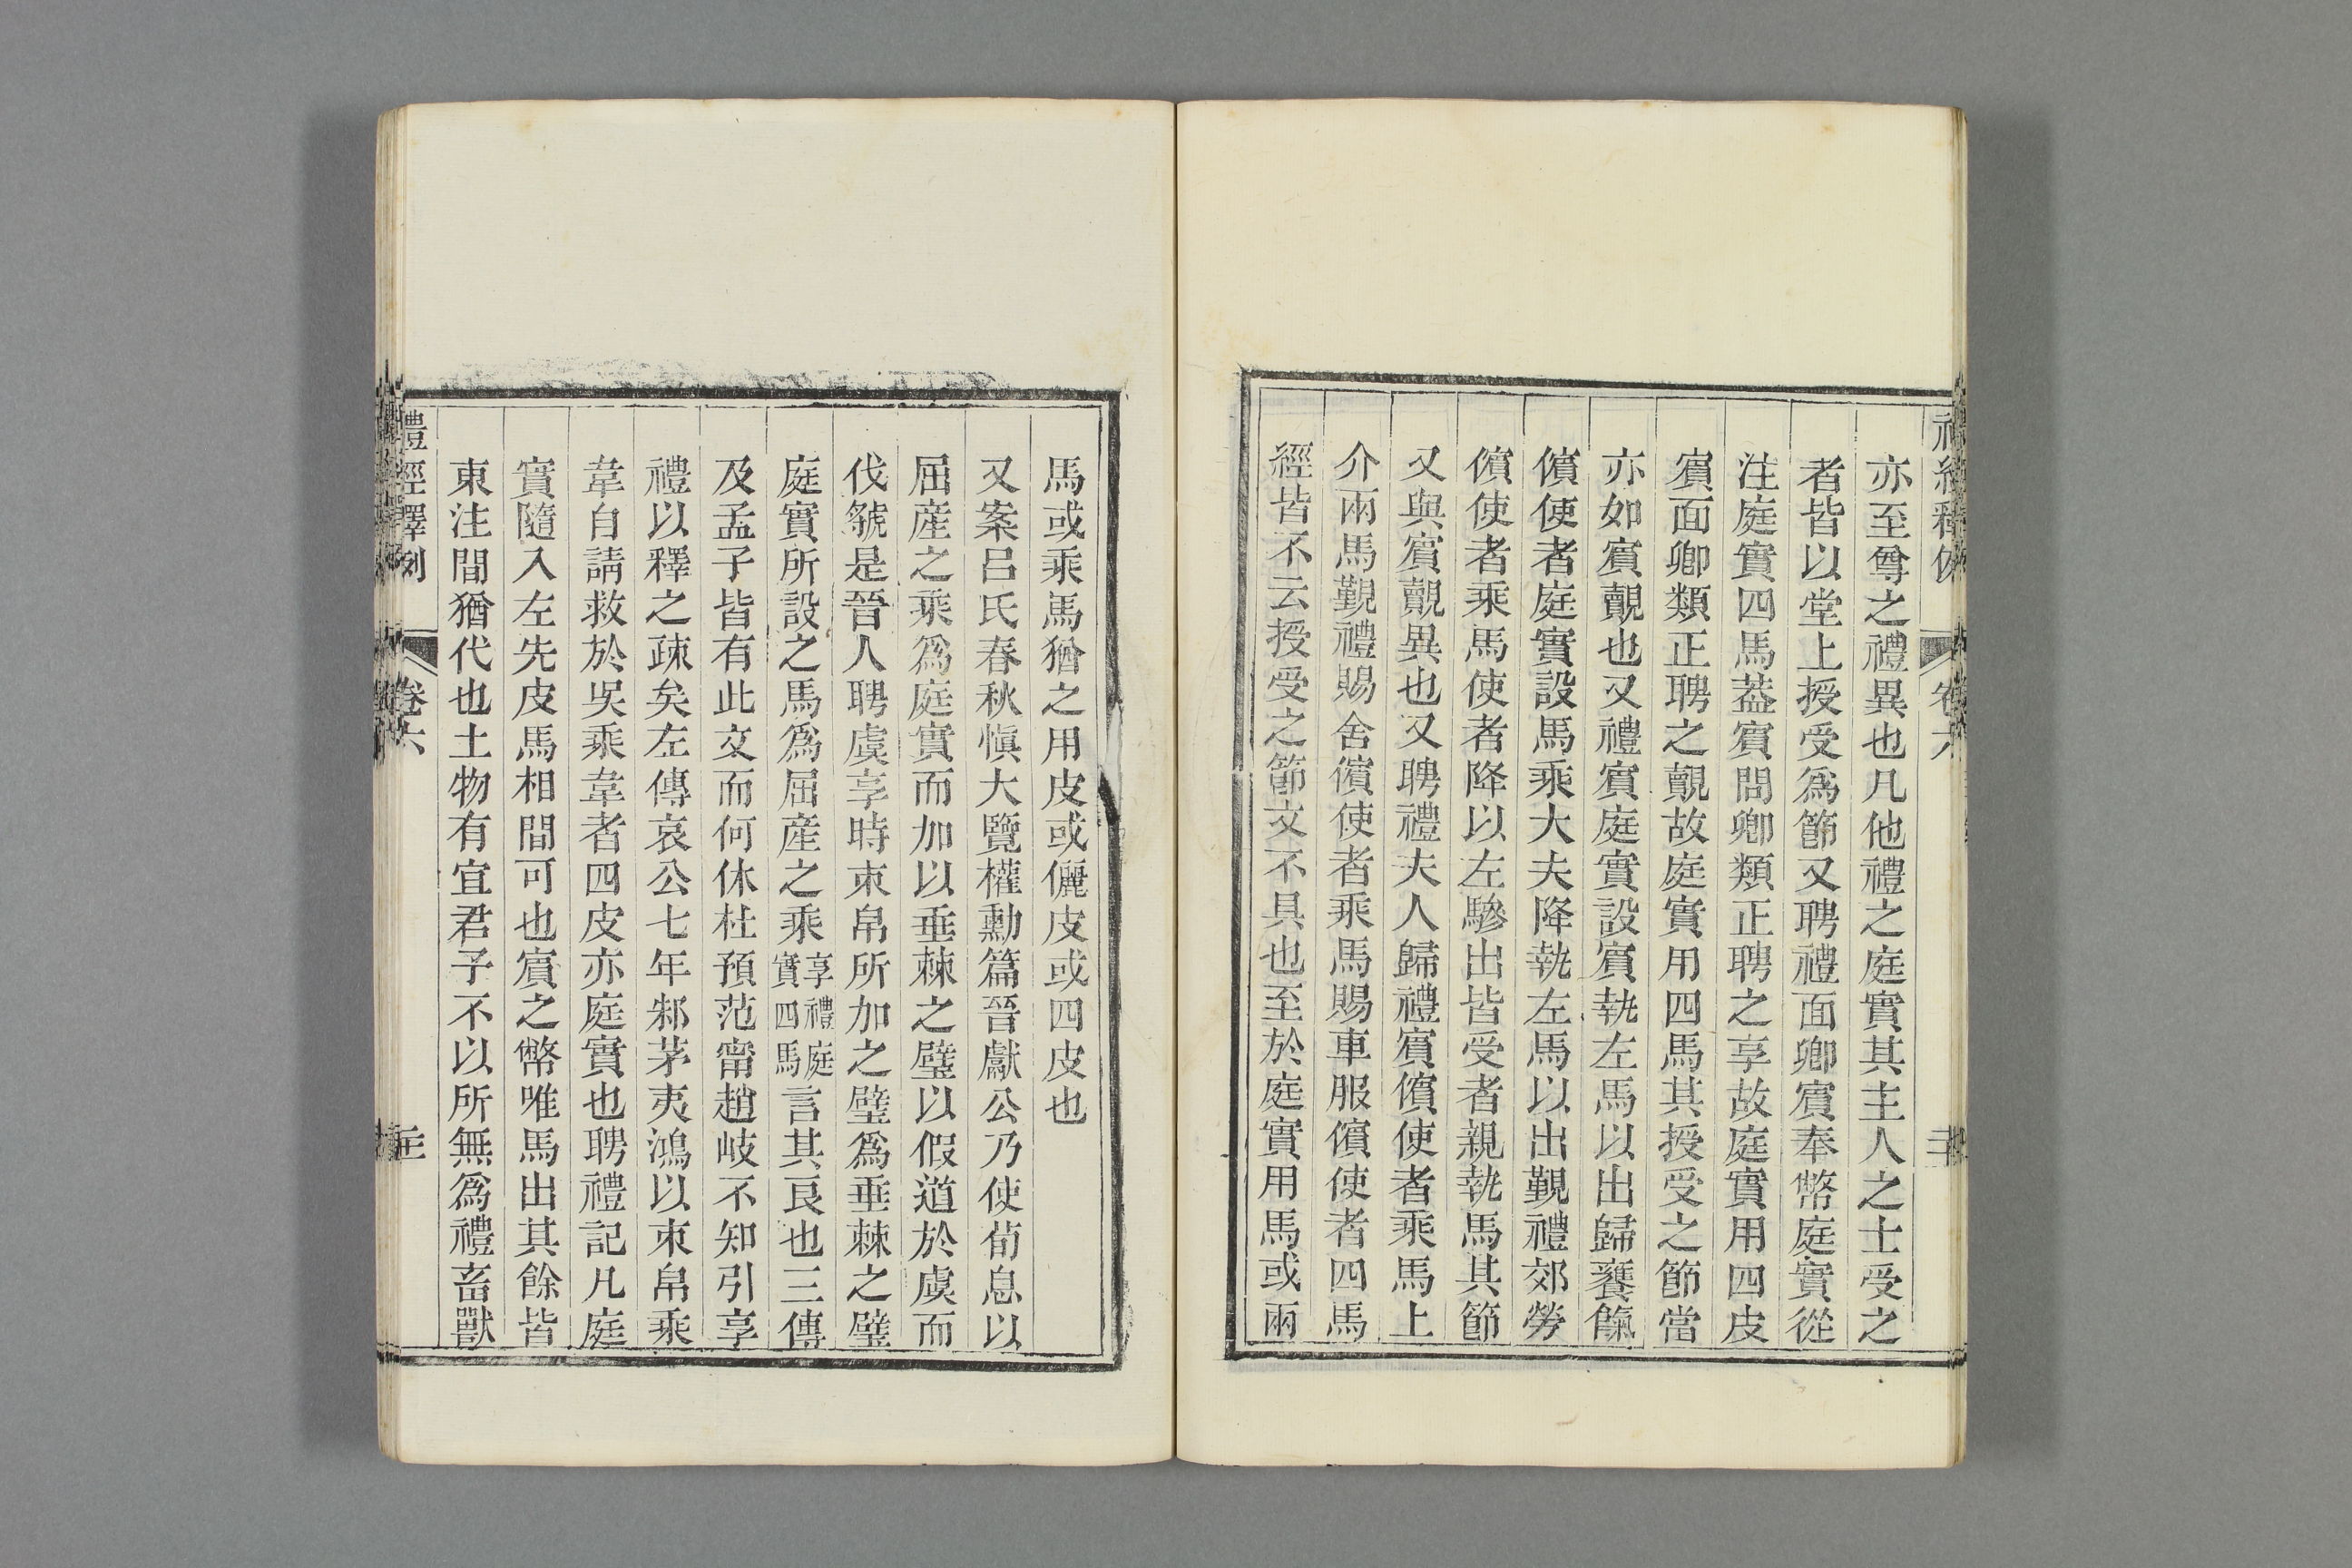 亦至尊之禮異也凡他禮之庭實其主人之士受之
者皆以堂上授受爲節又聘禮面卿賓奉幣庭實從
注庭實四馬葢賓問卿類正聘之享故庭實用四皮
賓面卿類正聘之覿故庭實用四馬其授受之節當
亦如賓覿也又禮賓庭實設賓執左馬以出歸饔餼
儐使者庭實設馬乘大夫降執左馬以出覲禮郊勞
儐使者乘馬使者降以左驂出皆受者親執馬其節
又與賓覿異也又聘禮夫人歸禮賓儐使者乘馬上
介兩馬覲禮賜舍儐使者乘馬賜車服儐使者四馬
經皆不云授受之節文不具也至於庭實用馬或兩
馬或乘馬猶之用皮或儷皮或四皮也
又案呂氏春秋愼大覽權勳篇晉獻公乃使荀息以
屈產之乘爲庭實而加以垂棘之璧以假道於虞而
伐虢是晉人聘虞享時束帛所加之璧爲垂棘之璧
庭實所設之馬爲屈產之乘享禮庭實四馬言其良也三傳
及孟子皆有此文而何休杜預范甯趙岐不知引享
禮以釋之疎矣左傳哀公七年邾茅夷鴻以束帛乘
韋自請救於吳乘韋者四皮亦庭實也聘禮記凡庭
實隨入左先皮馬相間可也賓之幣唯馬出其餘皆
東注間猶代也土物有宜君子不以所無爲禮畜獸
禮經釋例
卷六